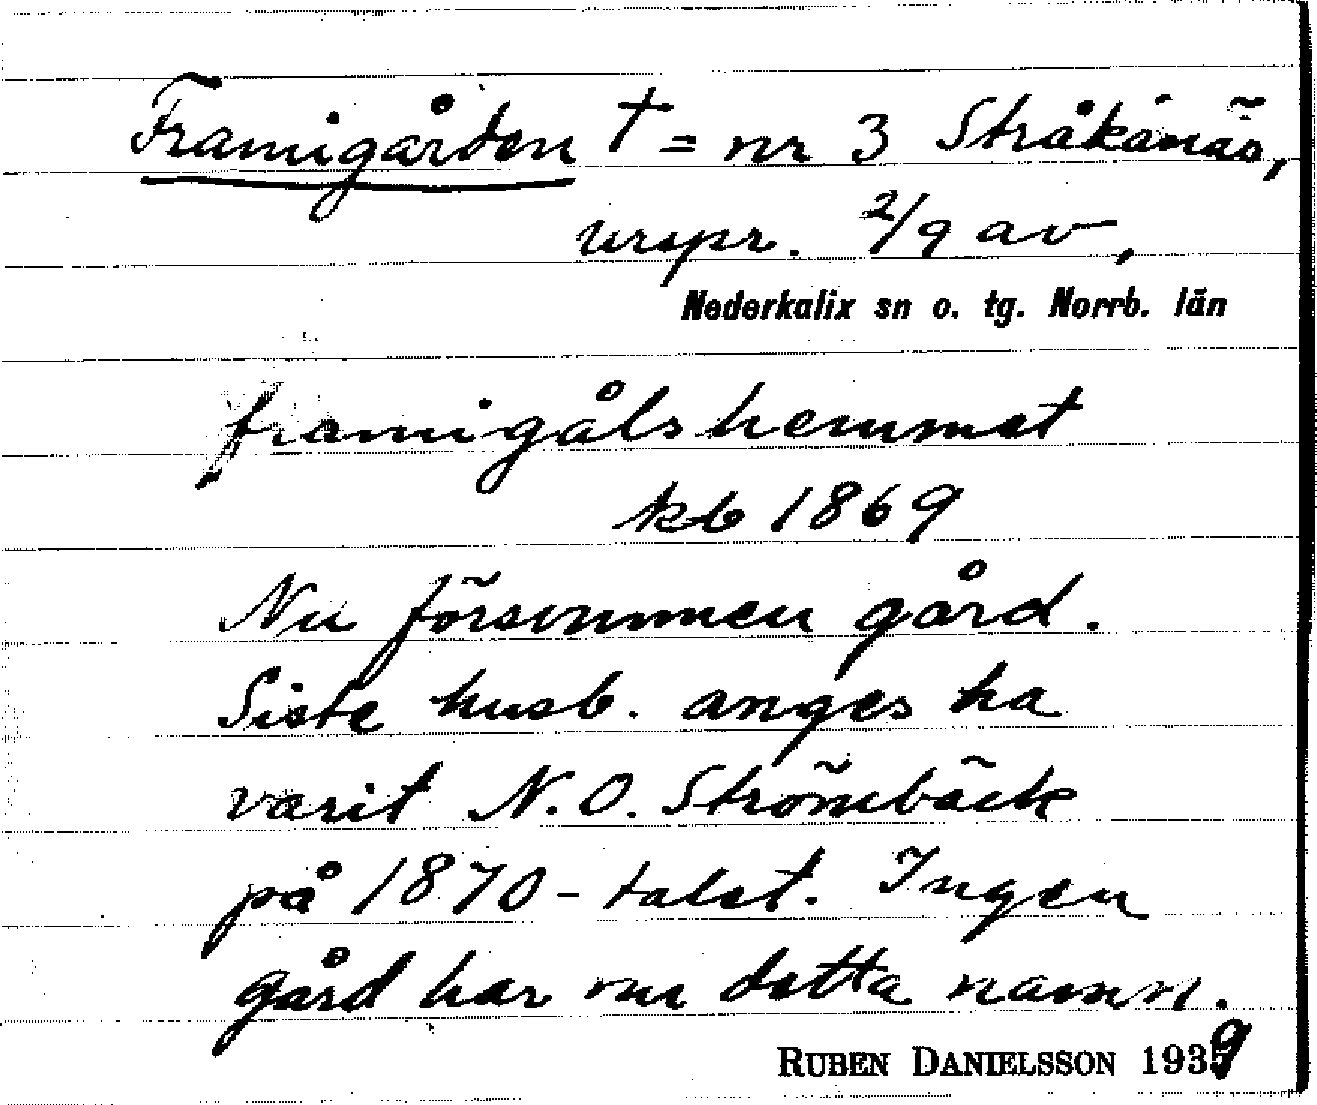 Framigården † = nr 3 Stråkanäs,
urspr. 2/9 av,
Nederkalix sn o. tg. Norrb. län
framigålshemmet
kb 1869
Nu försvunnen gård.
Siste husb. anges ha
varit N. O. Strömbäck
på 1870-talet. Ingen
gård har nu detta namn.
RUBEN DANIELSSON 1939